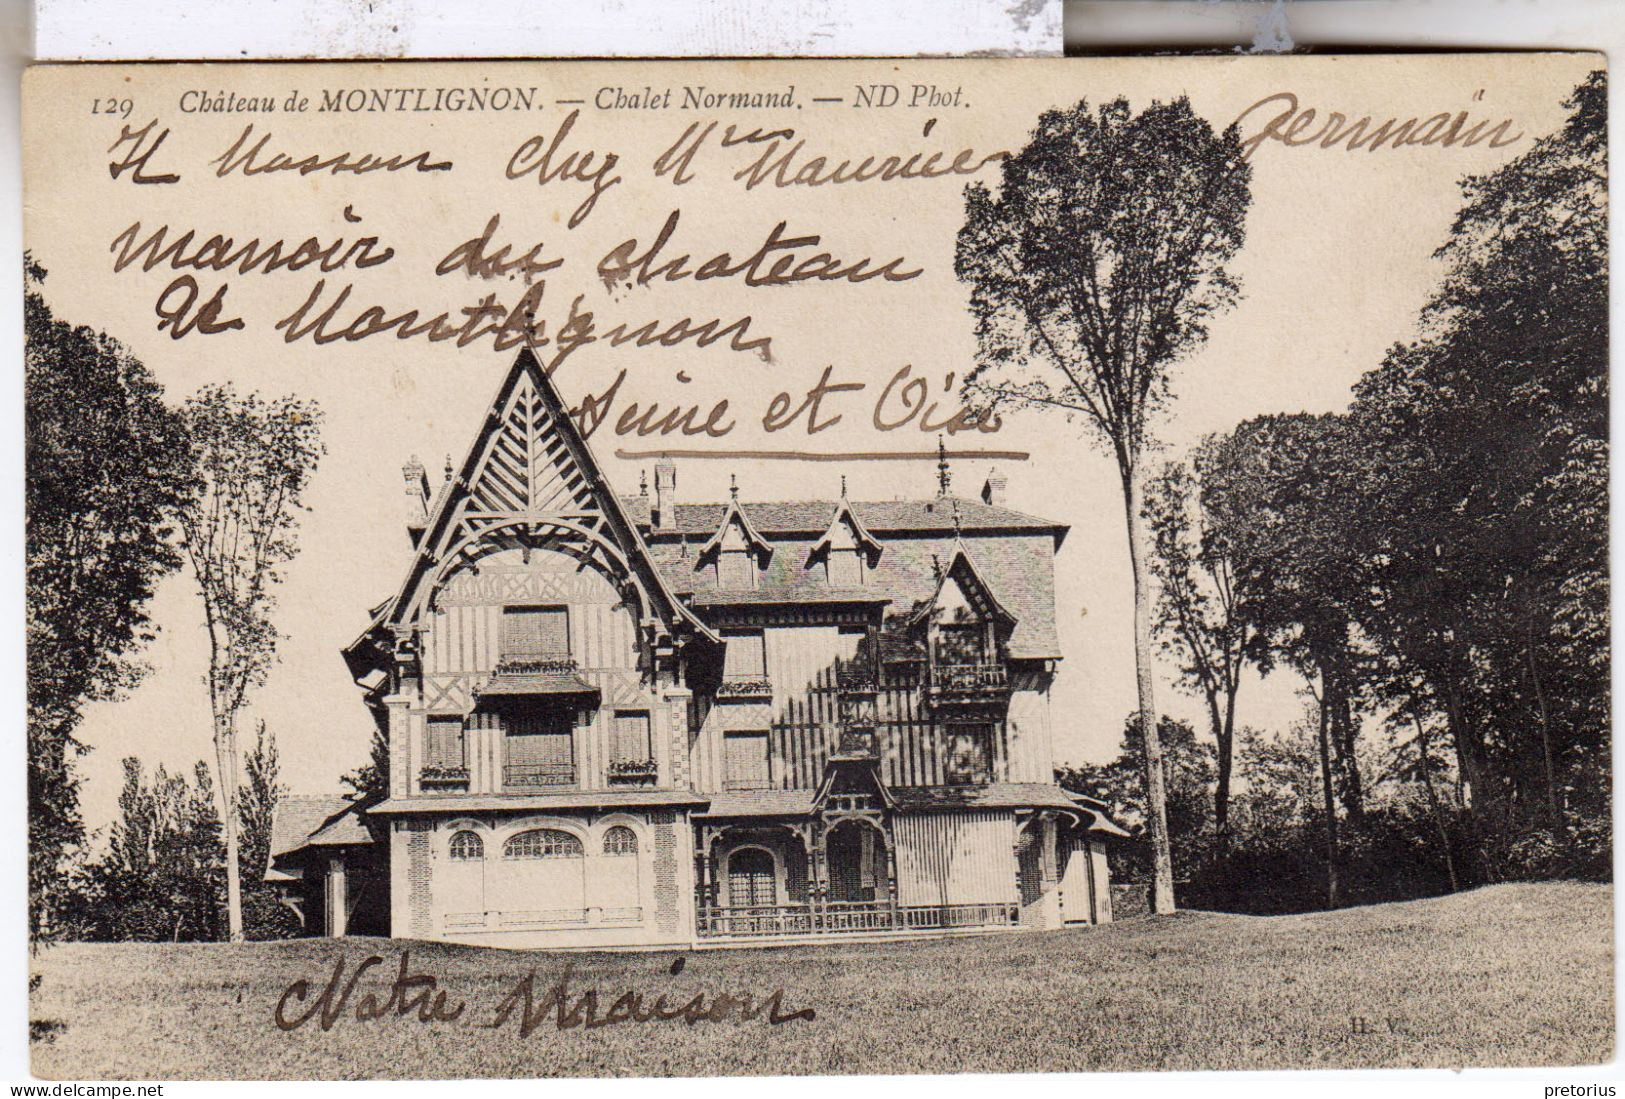 129 Château de MONTLIGNON. — Chalet Normand. — ND Phot.
H Masson chez Mres Maurice Germain
manoir du chateau
de Montlignon
Seine et Oise
Notre Maison
H. V.
pretorius